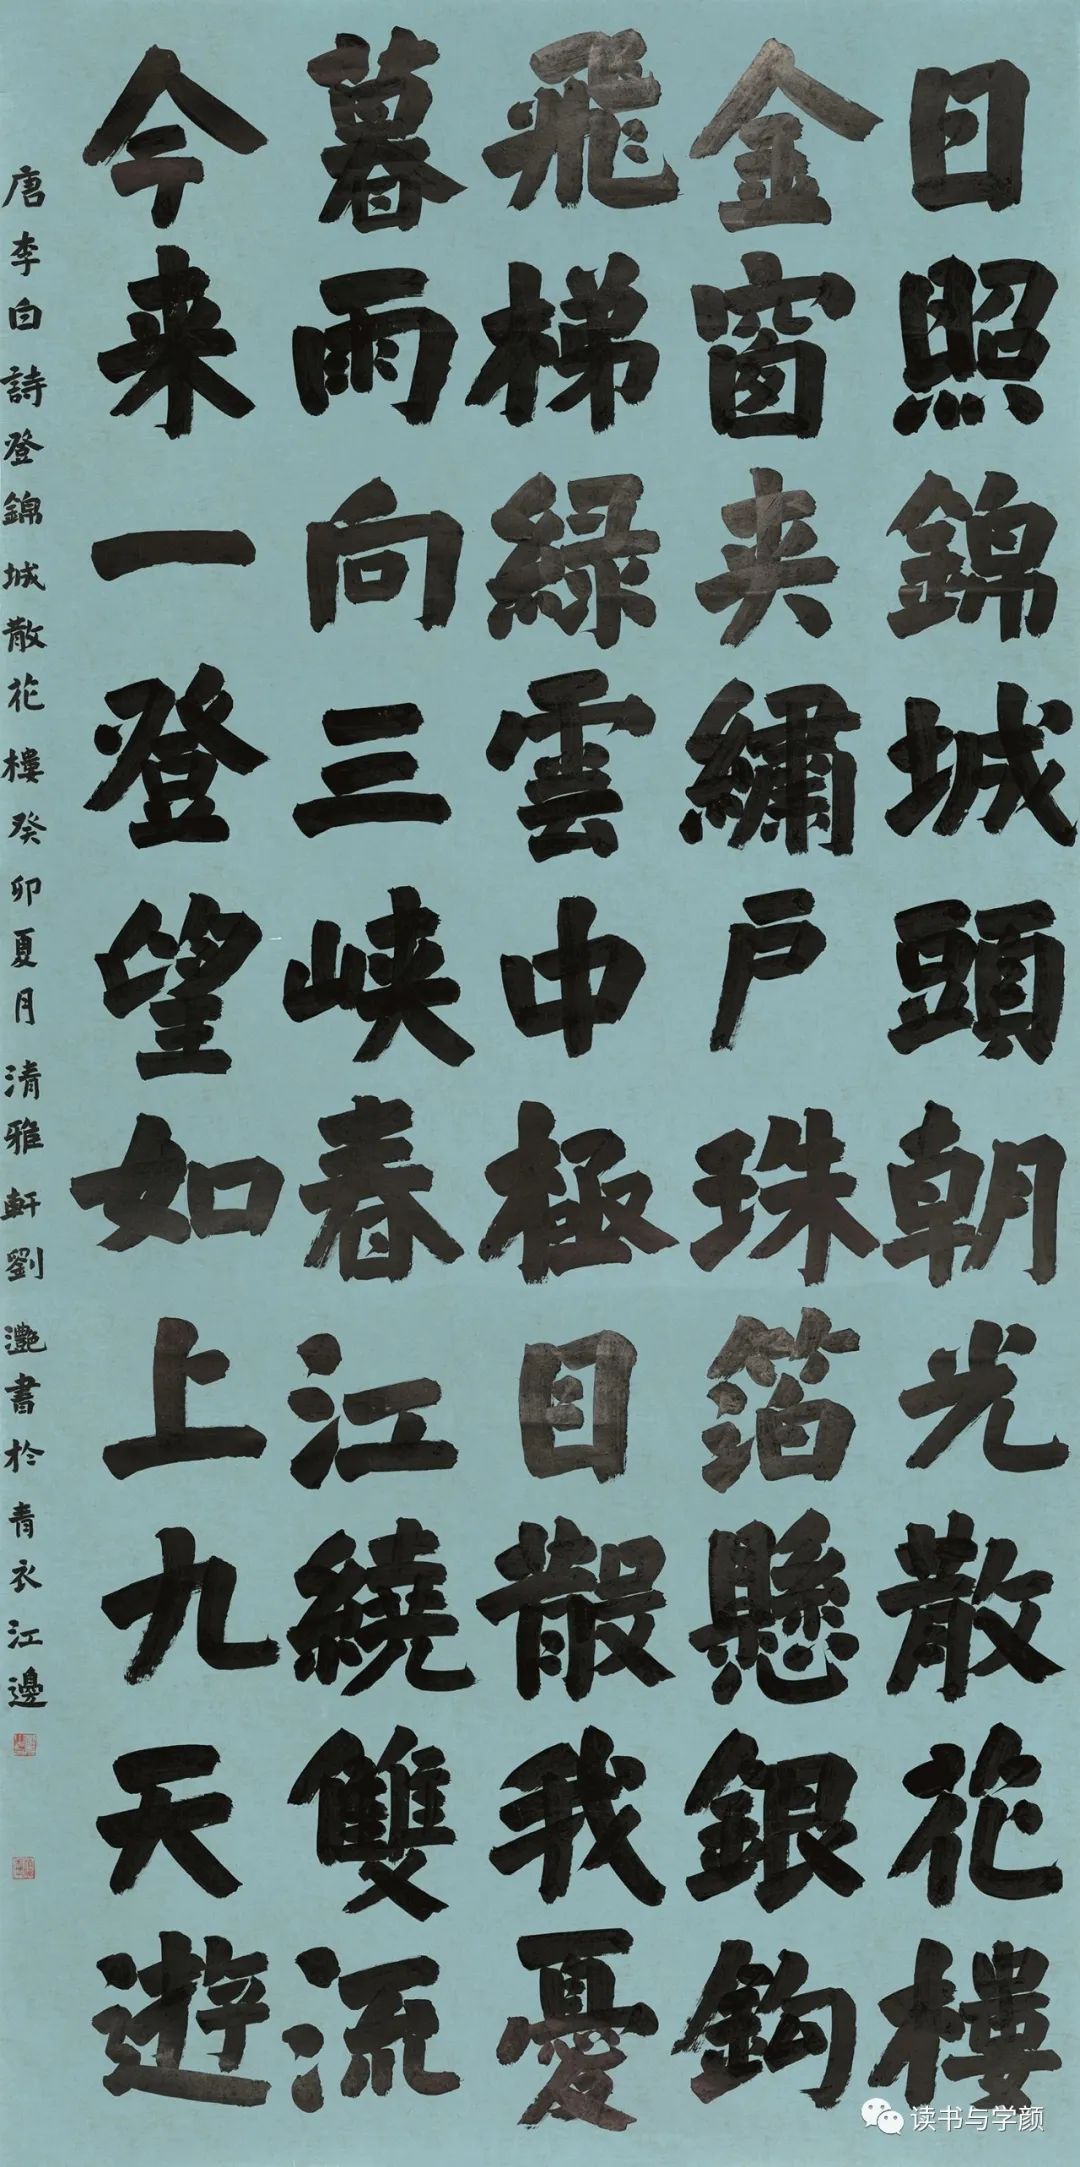 日照錦城頭朝光散花樓
金窗夾繡戶珠箔懸銀鉤
飛梯綠雲中極目散我憂
暮雨向三峽春江繞雙流
今来一登望如上九天遊
唐李白詩登錦城散花樓癸卯夏月清雅軒劉灔書於青衣江邊
读书与学颜